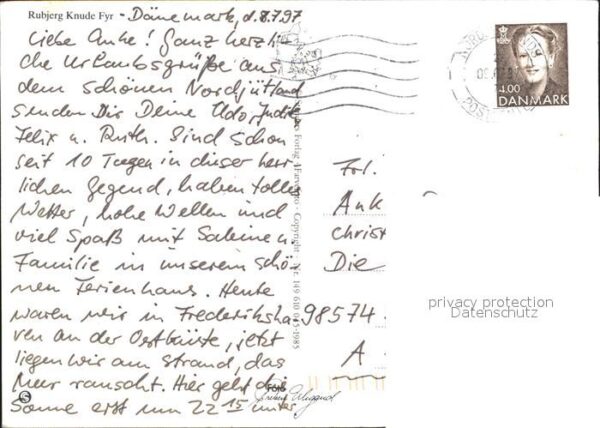 Rubjerg Knude Fyr - Dänemark, d. 8.7.97
Liebe Anke! Ganz herzli-
che Urlaubsgrüße aus
dem schönen Nordjütland
senden Dir Deine Udo, Judith
Felix u. Ruth. Sind schon
seit 10 Tagen in dieser herr
lichen Gegend, haben tolles
Wetter, hohe Wellen und
viel Spaß mit Sabine u.
Familie in unserem schö-
nen Ferienhaus. Heute
waren wir in Frederiksha-
ven an der Ostküste, jetzt
liegen wir am Strand, das
Meer rauscht. Hier geht die
Sonne erst um 22 15 unter
Forlag · Farvefoto · Copyright · Nr. 149 610 045-1985
Foto
4.00
DANMARK
Frl.
Ank
Christ
Die
98574
A
privacy protection
Datenschutz